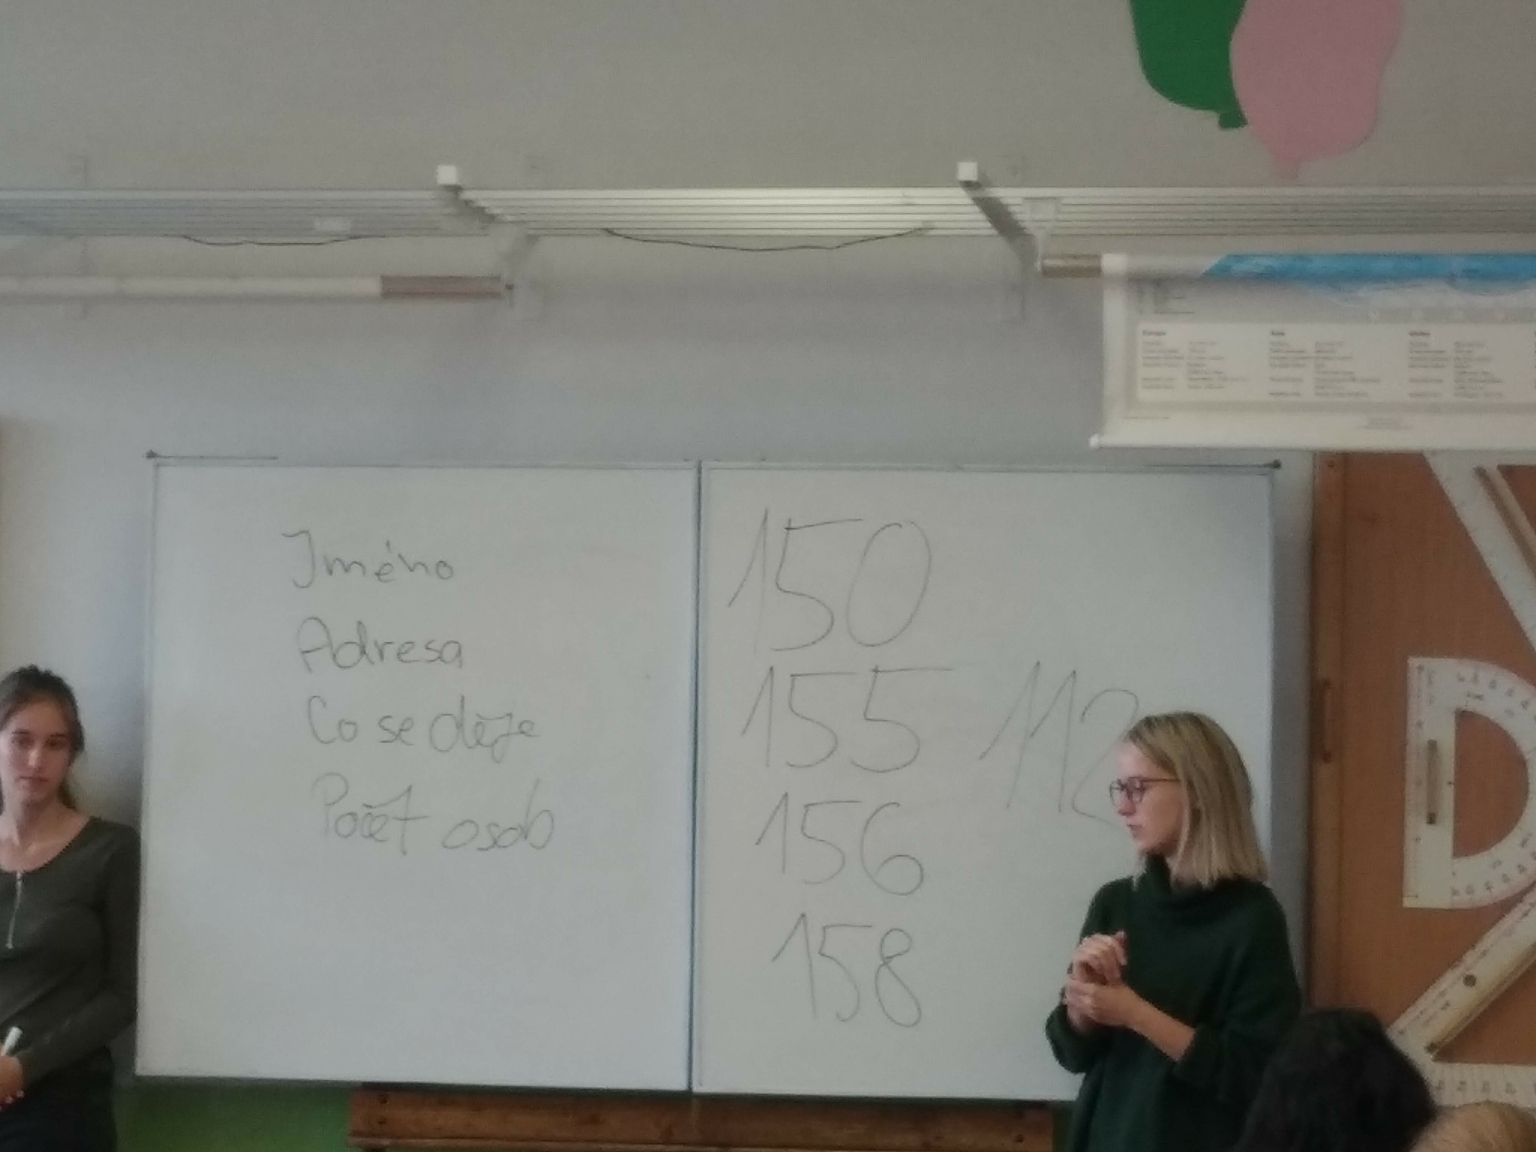 Jméno
Adresa
Co se děje
Počet osob
150
155
112
156
158